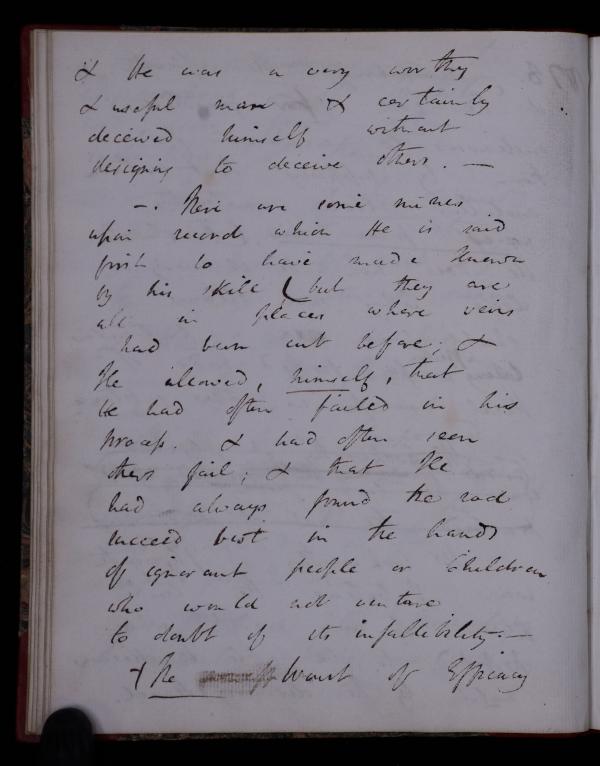 & He was a very worthy
& useful man & certainly
deceived himself without
designing to deceive others. —
—. There are some mines
upon record which He is said
first to have made known
by his skill ( but they are
all in places where veins
had been cut before; &
He allowed, himself, that
He had often failed in his
process. & had often seen
others fail; & that He
had always found the rod
succeed best in the hands
of ignorant people or Children
who would not venture
to doubt of its infallibility. —
+ The Want of Efficacy